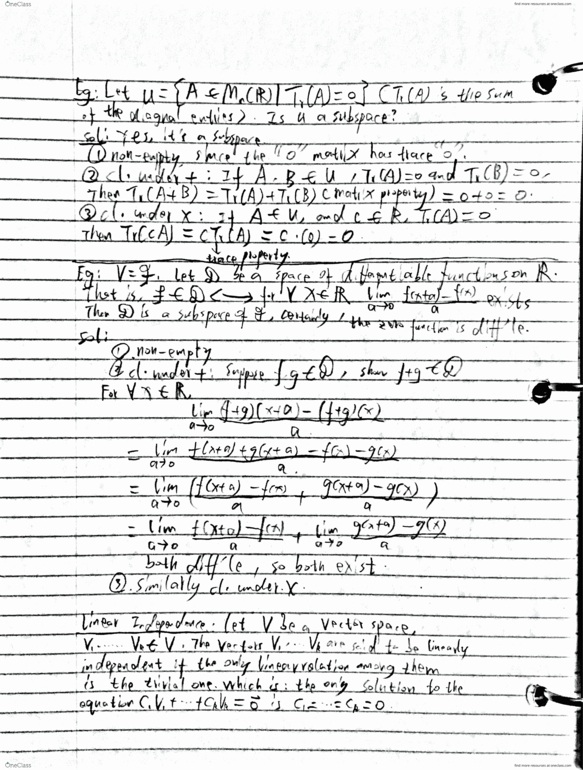 OneClass
find more resources at oneclass.com
Eg: Let U = {A ∈ Mn(ℝ) | Tr(A)=0} (Tr(A) is the sum
of the diagnal entries). Is U a subspace?
Sol: Yes, it's a subspace
① non-empty, since the "0" matrix has trace "0".
② cl. under + : If A, B ∈ U, Tr(A)=0 and Tr(B)=0,
Then Tr(A+B) = Tr(A)+Tr(B) (matrix property) = 0+0=0.
③ cl. under x : If A ∈ U, and c ∈ ℝ, Tr(A)=0
Then Tr(cA) = cTr(A) = c·(0) = 0.
trace property.
Eg: V=F. Let D be a space of differentiable functions on ℝ.
That is, f ∈ D <—> for ∀ x ∈ ℝ lim a→0 (f(x+a)-f(x))/a exists
Then D is a subspace of F, certainly, the zero function is diff'le.
Sol:
① non-empty
② cl. under + : Suppose f, g ∈ D, show f+g ∈ D
For ∀ x ∈ ℝ,
lim a→0 ((f+g)(x+a) - (f+g)(x))/a
= lim a→0 (f(x+a)+g(x+a) - f(x) - g(x))/a
= lim a→0 ((f(x+a) - f(x))/a + (g(x+a) - g(x))/a)
= lim a→0 (f(x+a) - f(x))/a + lim a→0 (g(x+a) - g(x))/a
both diff'le, so both exist.
③ Similarly cl. under x.
Linear Independence. Let V be a vector space,
V1, ..... Vk ∈ V. The vectors V1, ... Vk are said to be linearly
independent if the only linear relation among them
is the trivial one. Which is: the only solution to the
equation C1V1 + ... + CkVk = 0⃗ is C1= ... = Ck = 0
OneClass
find more resources at oneclass.com